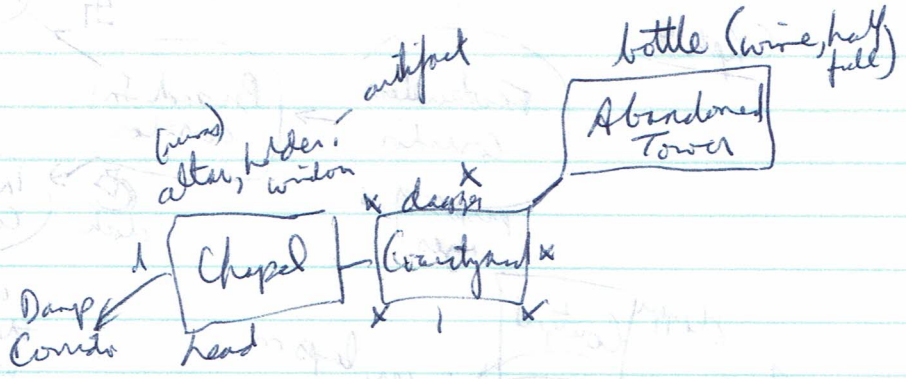 bottle (wine, half
full)
Abandoned
Tower
artifact
(runes)
altar, holder,
window
dagger
Chapel
Courtyard
d
Damp
Corrido
head